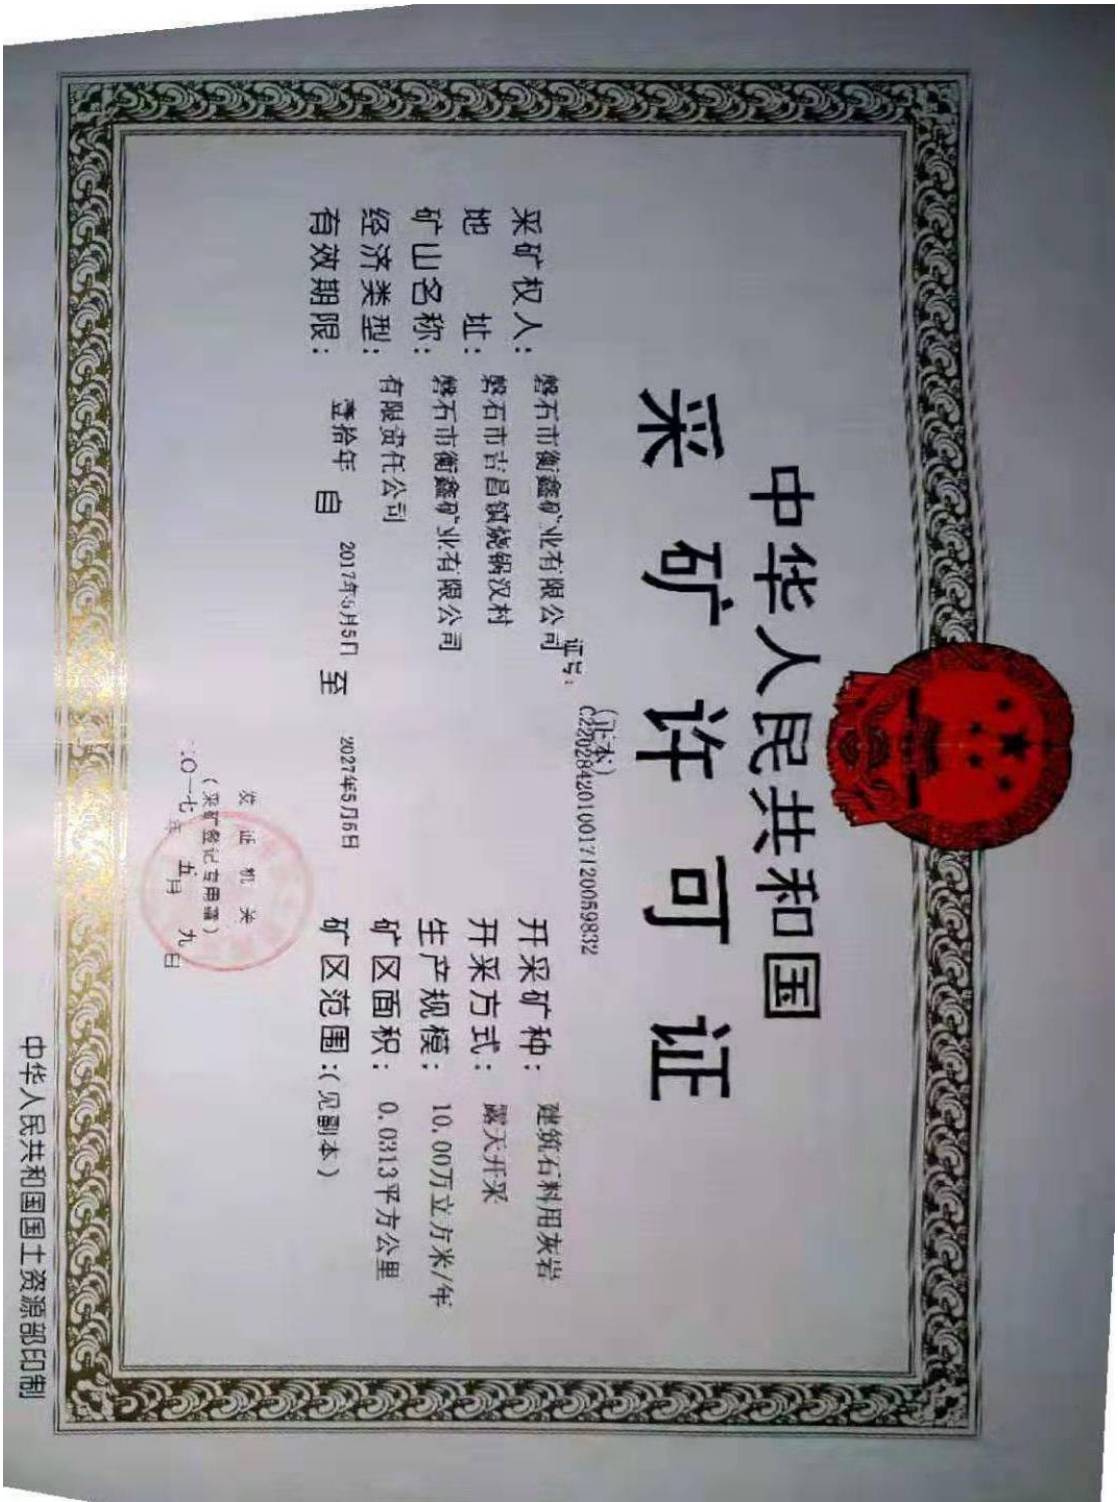 中华人民共和国
采矿许可证
(正本)
证号: C2202842010017120059832
采矿权人: 磐石市衡鑫矿业有限公司
地 址: 磐石市吉昌镇烧锅汉村
矿山名称: 磐石市衡鑫矿业有限公司
经济类型: 有限责任公司
有效期限: 壹拾年 自 2017年5月5日 至 2027年5月5日
开采矿种: 建筑石料用灰岩
开采方式: 露天开采
生产规模: 10.00万立方米/年
矿区面积: 0.0313平方公里
矿区范围:(见副本)
发证机关
(采矿登记专用章)
二〇一七年 五月 九日
中华人民共和国国土资源部印制